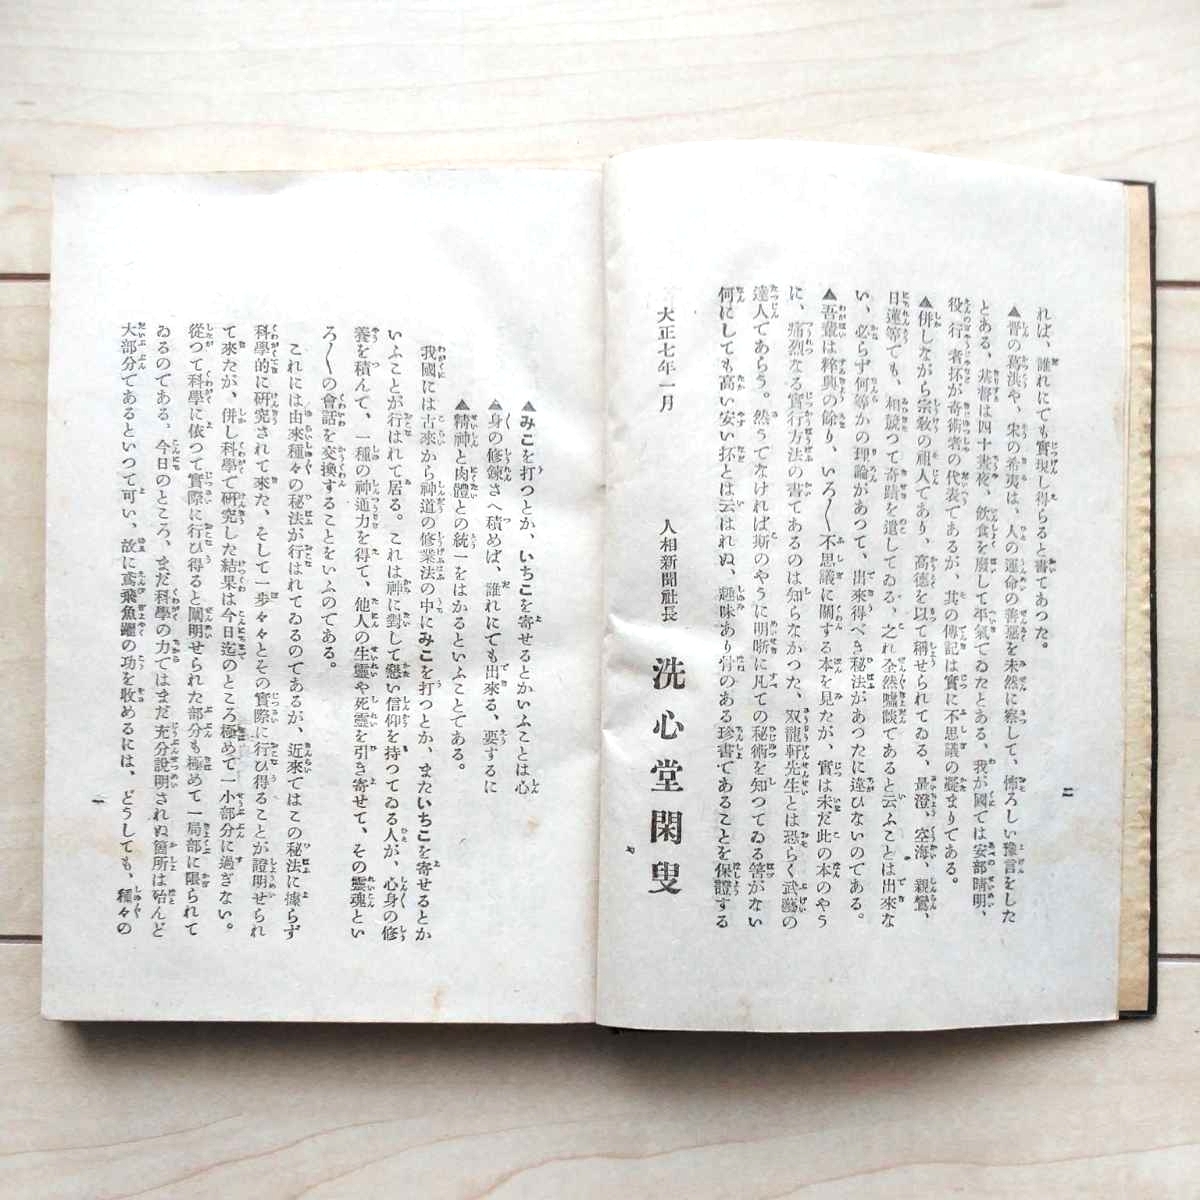 二
れば、誰れにでも實現し得らると書てあった。
▲晋の葛洪や、宋の希夷は、人の運命の善惡を未然に察して、怖ろしい豫言をした
とある、基督は四十晝夜、飮食を廢して平氣でゐたとある、我が國では安部晴明、
役の行者抔が奇術者の代表であるが、其の傳記は實に不思議の凝まりである。
▲併しながら宗敎の祖人であり、高德を以て稱せられてゐる、最澄、空海、親鸞、
日蓮等でも、相競つて奇蹟を遺してゐる、之れ全然噓談であると云ふことは出來な
い、必らず何等かの理論があつて、出來得べき秘法があつたに違ひないのである。
▲吾輩は粹興の餘り、いろ〳〵不思議に關する本を見たが、實は未だ此の本のやう
に、痛烈なる實行方法の書てあるのは知らなかつた、双龍軒先生とは恐らく武藝の
達人であらう。然うでなければ斯のやうに明晣に凡ての秘術を知つてゐる筈がない
何にしても高い安い抔とは云はれぬ、趣味あり骨のある珍書であることを保證する
大正七年一月
人相新聞社長 洗心堂閑叟
▲みこを打つとか、いちこを寄せるとかいふことは心
▲身の修鍊さへ積めば、誰れにでも出來る、要するに
▲精神と肉體との統一をはかるといふことである。
我國には古來から神道の修業法の中にみこを打つとか、またいちこを寄せるとか
いふことが行はれて居る。これは神に對して懇い信仰を持つてゐる人が、心身の修
養を積んで、一種の神通力を得て、他人の生靈や死靈を引き寄せて、その靈魂とい
ろ〳〵の會話を交換することをいふのである。
これには由來種々の秘法が行はれてゐるのであるが、近來ではこの秘法に據らず
科學的に硏究されて來た、そして一步々々とその實際に行ひ得ることが證明せられ
て來たが、併し科學で硏究した結果は今日迄のところ極めて一小部分に過ぎない。
從つて科學に依つて實際に行ひ得ると闡明せられた部分も極めて一局部に限られて
ゐるのである、今日のところ、まだ科學の力ではまだ充分說明されぬ箇所は殆んど
大部分であるといつて可い、故に鳶飛魚躍の功を收めるには、どうしても、種々の
一